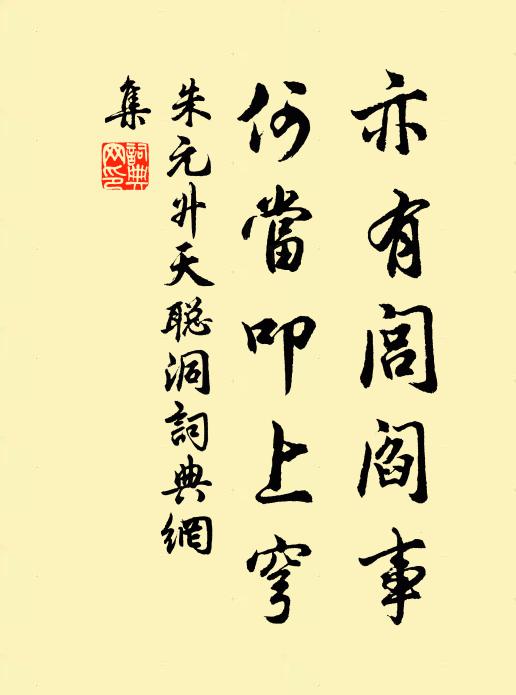 亦有閭閻事
何當叩上穹
朱元升天聰洞詞典網
集
詞典
网印